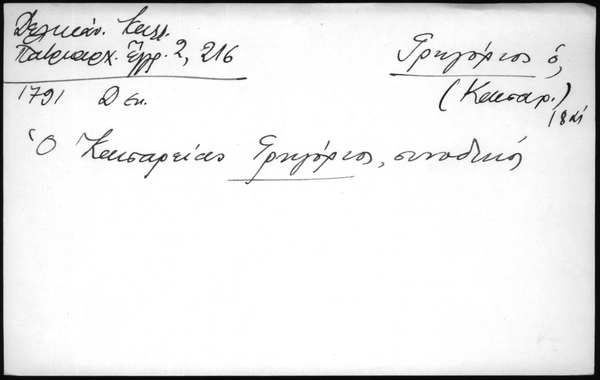 Δελικάν. Καλλ.
Πατριαρχ. Ἔγγρ. 2, 216
Γρηγόριος ὁ,
(Καισαρ.)
18 αἰ
1791 Δεκ.
Ὁ Καισαρείας Γρηγόριος, συνοδικός